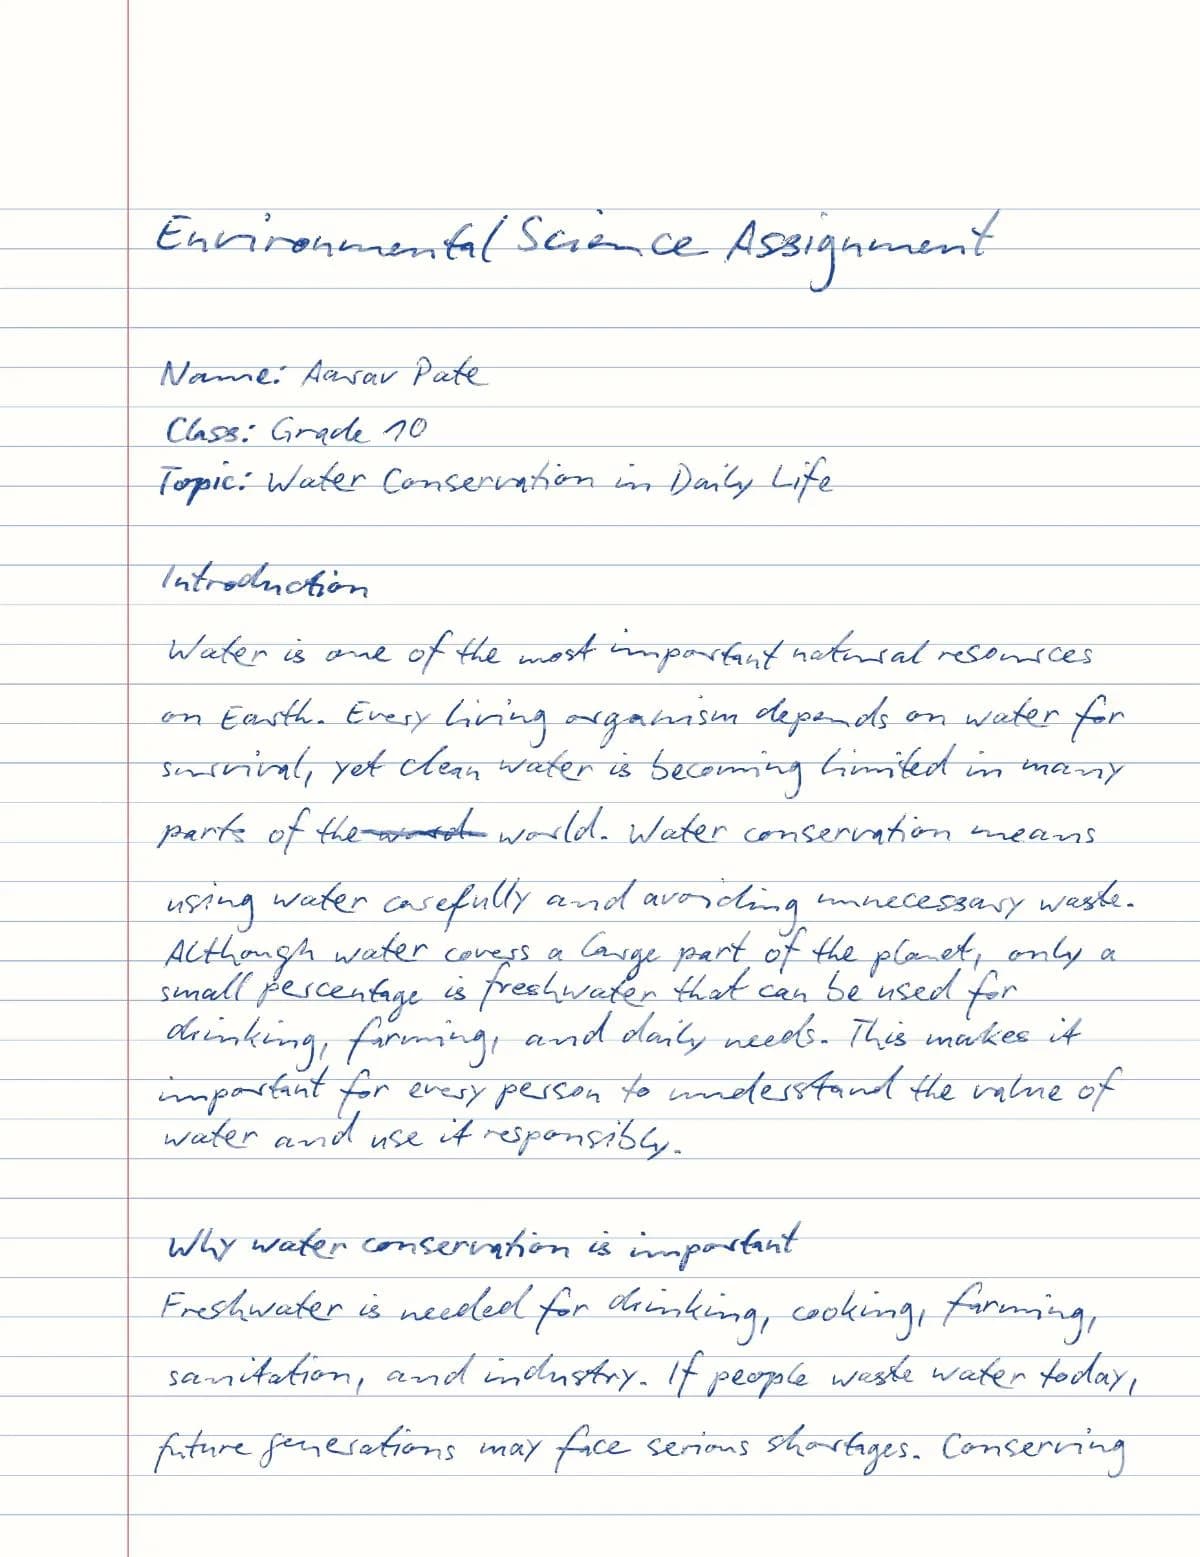 Environmental Science Assignment
Name: Aarav Pate
Class: Grade 10
Topic: Water Conservation in Daily Life
Introduction
Water is one of the most important natural resources
on Earth. Every living organism depends on water for
survival, yet clean water is becoming limited in many
parts of the word world. Water conservation means
using water carefully and avoiding unnecessary waste.
Although water covers a large part of the planet, only a
small percentage is freshwater that can be used for
drinking, farming, and daily needs. This makes it
important for every person to understand the value of
water and use it responsibly.
Why water conservation is important
Freshwater is needed for drinking, cooking, farming,
sanitation, and industry. If people waste water today,
future generations may face serious shortages. Conserving